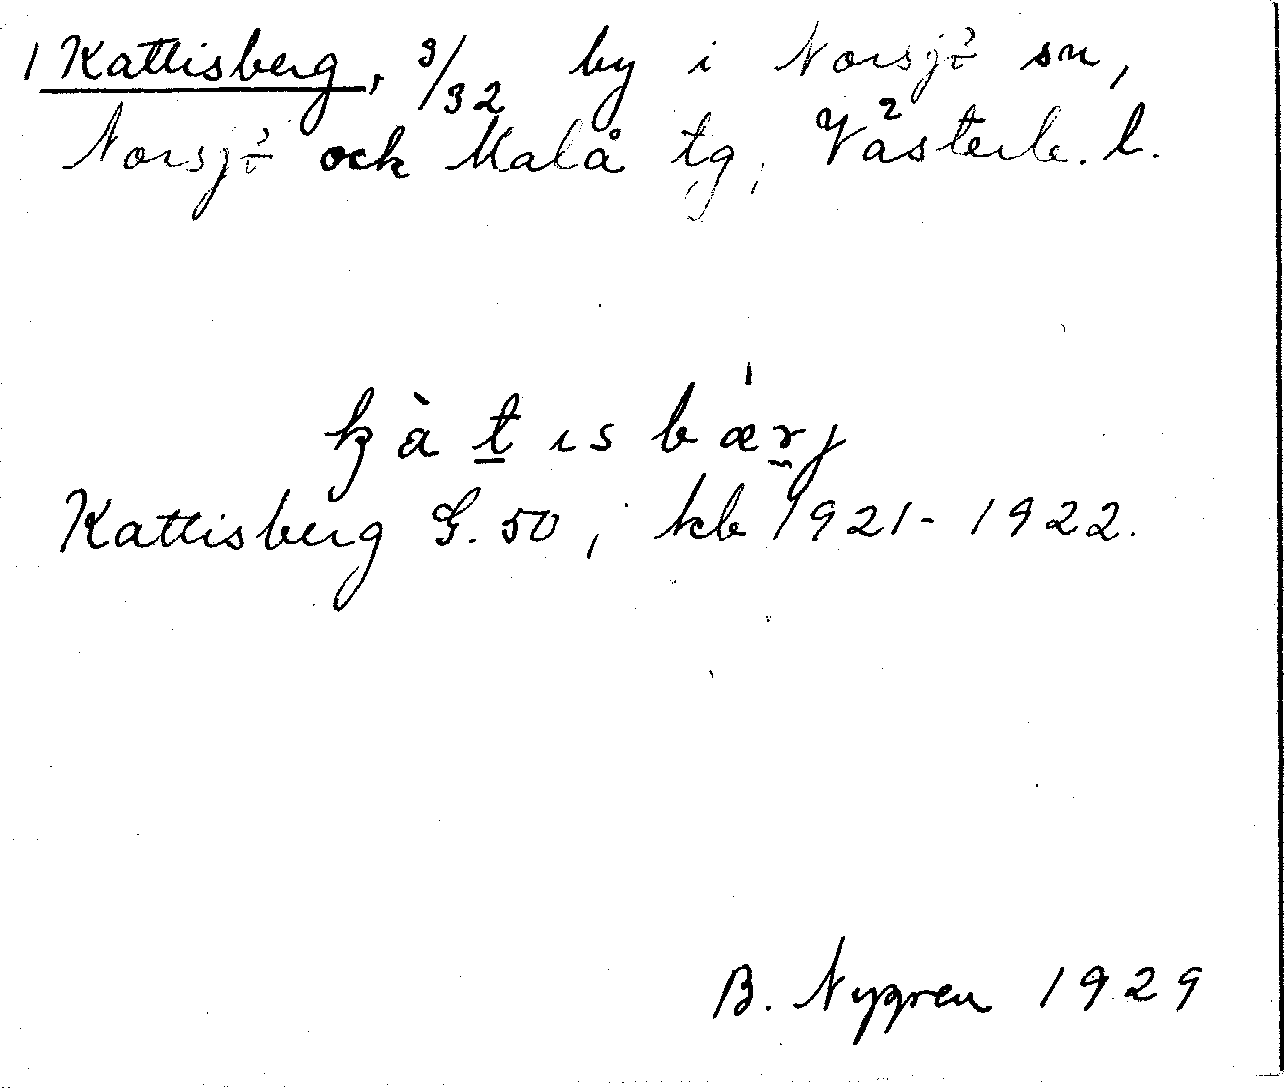 1 Kattisberg, 9/32 by i Norsjö sn,
Norsjö ock Malå tg, Västerb. l.
kàtısbæ̍rj
Kattisberg G. 50, kb 1921-1922.
B. Nygren 1929